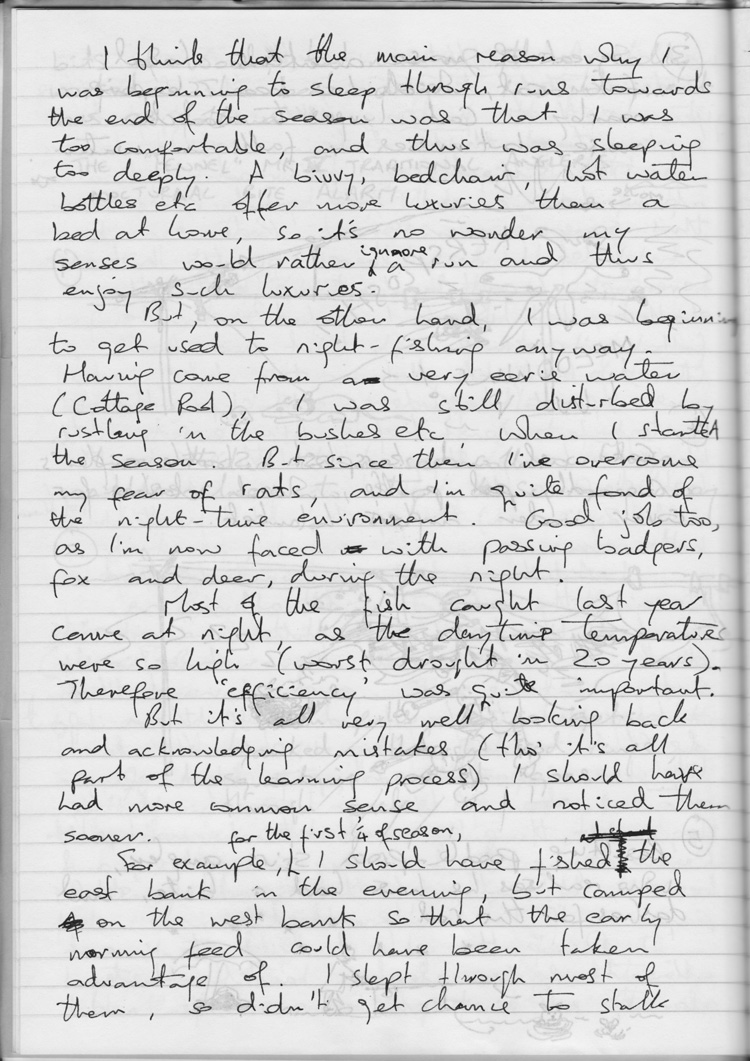 I think that the main reason why I
was beginning to sleep through runs towards
the end of the season was that I was
too comfortable, and thus was sleeping
too deeply. A bivvy, bedchair, hot water
bottles etc offer more luxuries them a
bed at home, so it's no wonder my
senses would rather ignore a run and thus
enjoy such luxuries.
But, on the other hand, I was beginnin
to get used to night-fishing anyway.
Having come from a very eerie water
(Cottage Pool), I was still disturbed by
rustling in the bushes etc, when I started
the season. But since then I've overcome
my fear of rats, and I'm quite fond of
the night-time environment. Good job too,
as I'm now faced with passing badgers,
fox and deer, during the night.
Most of the fish caught last year
came at night, as the daytime temperatures
were so high (worst drought in 20 years).
Therefore 'efficiency' was quite important.
But it's all very well looking back
and acknowledging mistakes (tho' it's all
part of the learning process) I should have
had more common sense and noticed them
sooner.
For example, for the first ¼ of season, I should have fished the
east bank in the evening, but camped
on the west bank so that the early
morning feed could have been taken
advantage of. I slept through most of
them, so didn't get chance to stalk